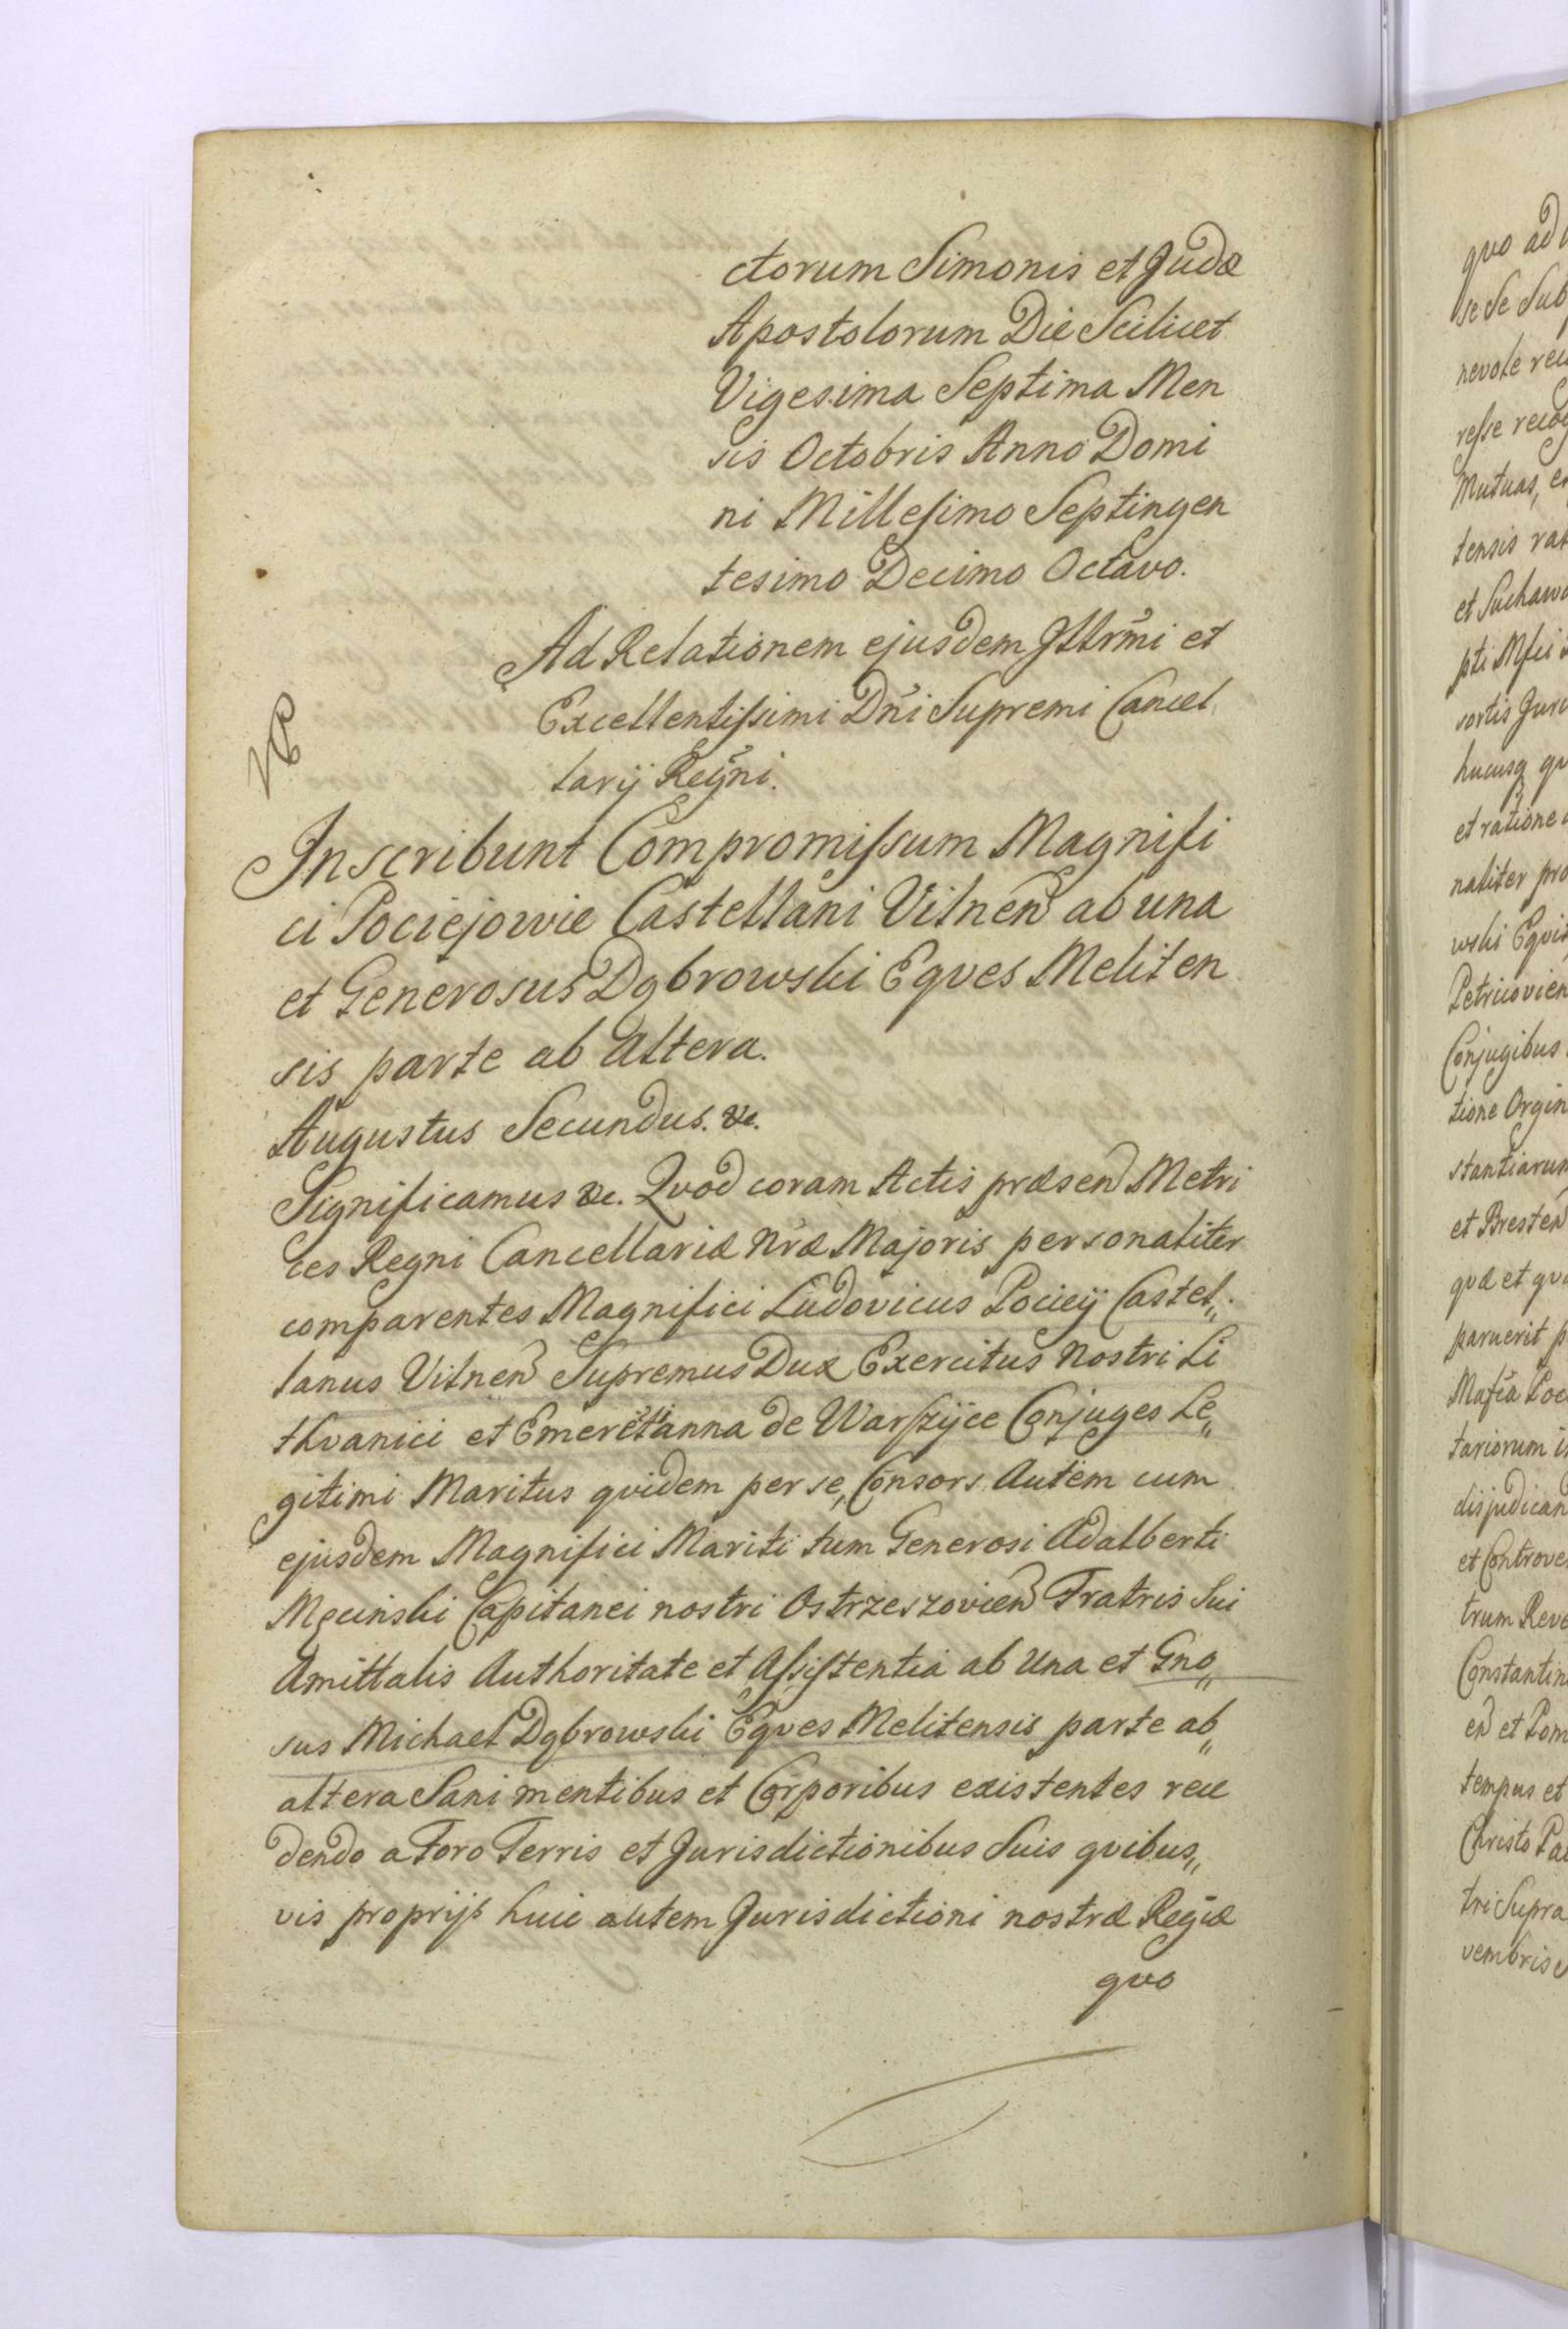 ctorum Simonis et Judæ
Apostolorum Die Scilicet
Vigesima Septima Men
sis Octobris Anno Domi
ni Millesimo Septingen
tesimo Decimo Octavo.
Ad Relationem ejusdem Illrmi et
Excellentissimi Dni Supremi Cancel
larij Regni.
Inscribunt Compromissum Magnifi
ci Pociejowie Castellani Vilnen ab una
et Generosus Dąbrowski Eqves Meliten
sis parte ab altera.
Augustus Secundus. &c.
Significamus &c. Qvod coram Actis præsen Metri
ces Regni Cancellariæ nræ Majoris personaliter
comparentes Magnifici Ludovicus Pociey Castel„
lanus Vilnen Supremus Dux Exercitus Nostri Li
thvanici et Emeretianna de Warszyce Conjuges Le„
gitimi Maritus qvidem per se, Consors Autem cum
ejusdem Magnifici Mariti tum Generosi Adalberti
Męcinski Capitanei nostri Ostrzeszovien Fratris Sui
Amittalis Authoritate et Assistentia ab Una et Gno„
sus Michael Dąbrowski Eqves Melitensis parte ab„
altera Sani mentibus et Corporibus existentes rece
dendo a Foro Terris et Jurisdictionibus Suis qvibus„
vis proprijs huic autem Jurisdictioni nostræ Regiæ
qvo
qvo ad
se se Sub
nevole
Mutuas,
tensis
hucusq
et ratione
naliter pro
wski Eqvi
Petricovien
Conjugibus
tione Orgin
stantiarum
et Bresten
qvæ et qv
paruerit p
tariorum
disjudican
et Controve
trum Reve
Constantin
en et Pom
tempus et
Christo Pa
tri Supra
vembris